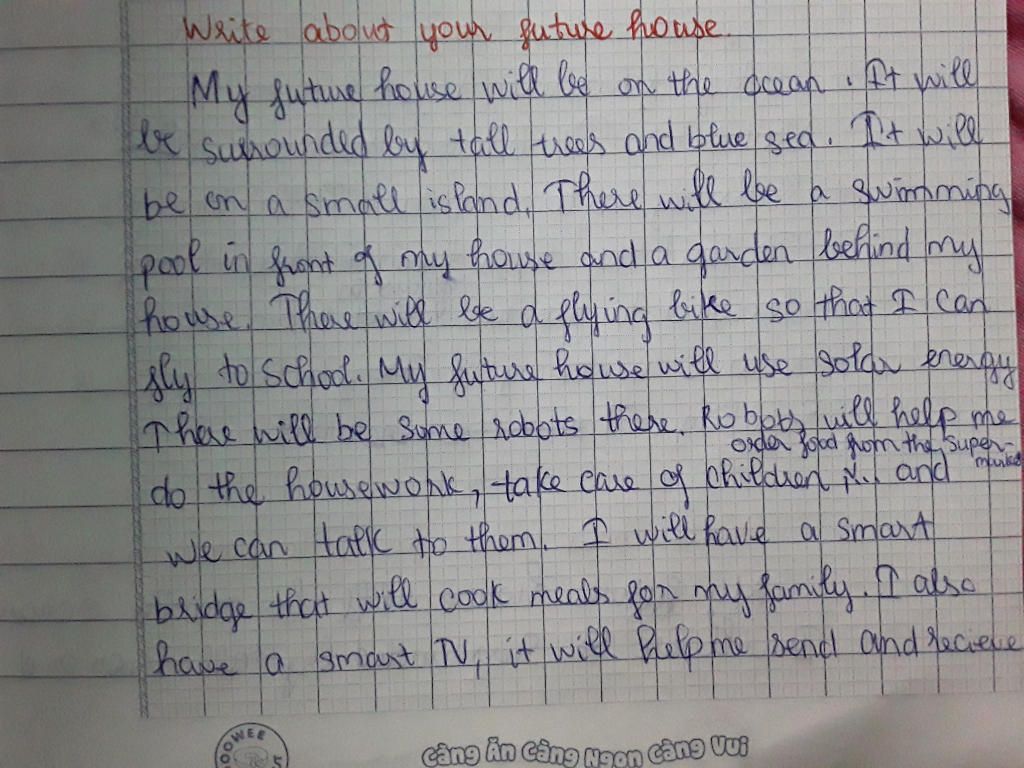 Write about your future house.
My future house will be on the ocean. It will
be surrounded by tall trees and blue sea. It will
be on a small island. There will be a swimming
pool in front of my house and a garden behind my
house. There will be a flying bike so that I can
fly to school. My future house will use solar energy
There will be some robots there. Robots will help me
order food from the super-
do the housework, take care of children, and
we can talk to them. I will have a smart
bridge that will cook meals for my family. I also
have a smart TV, it will help me send and recieve
OOWEE
Càng Ăn Càng Ngon Càng Vui